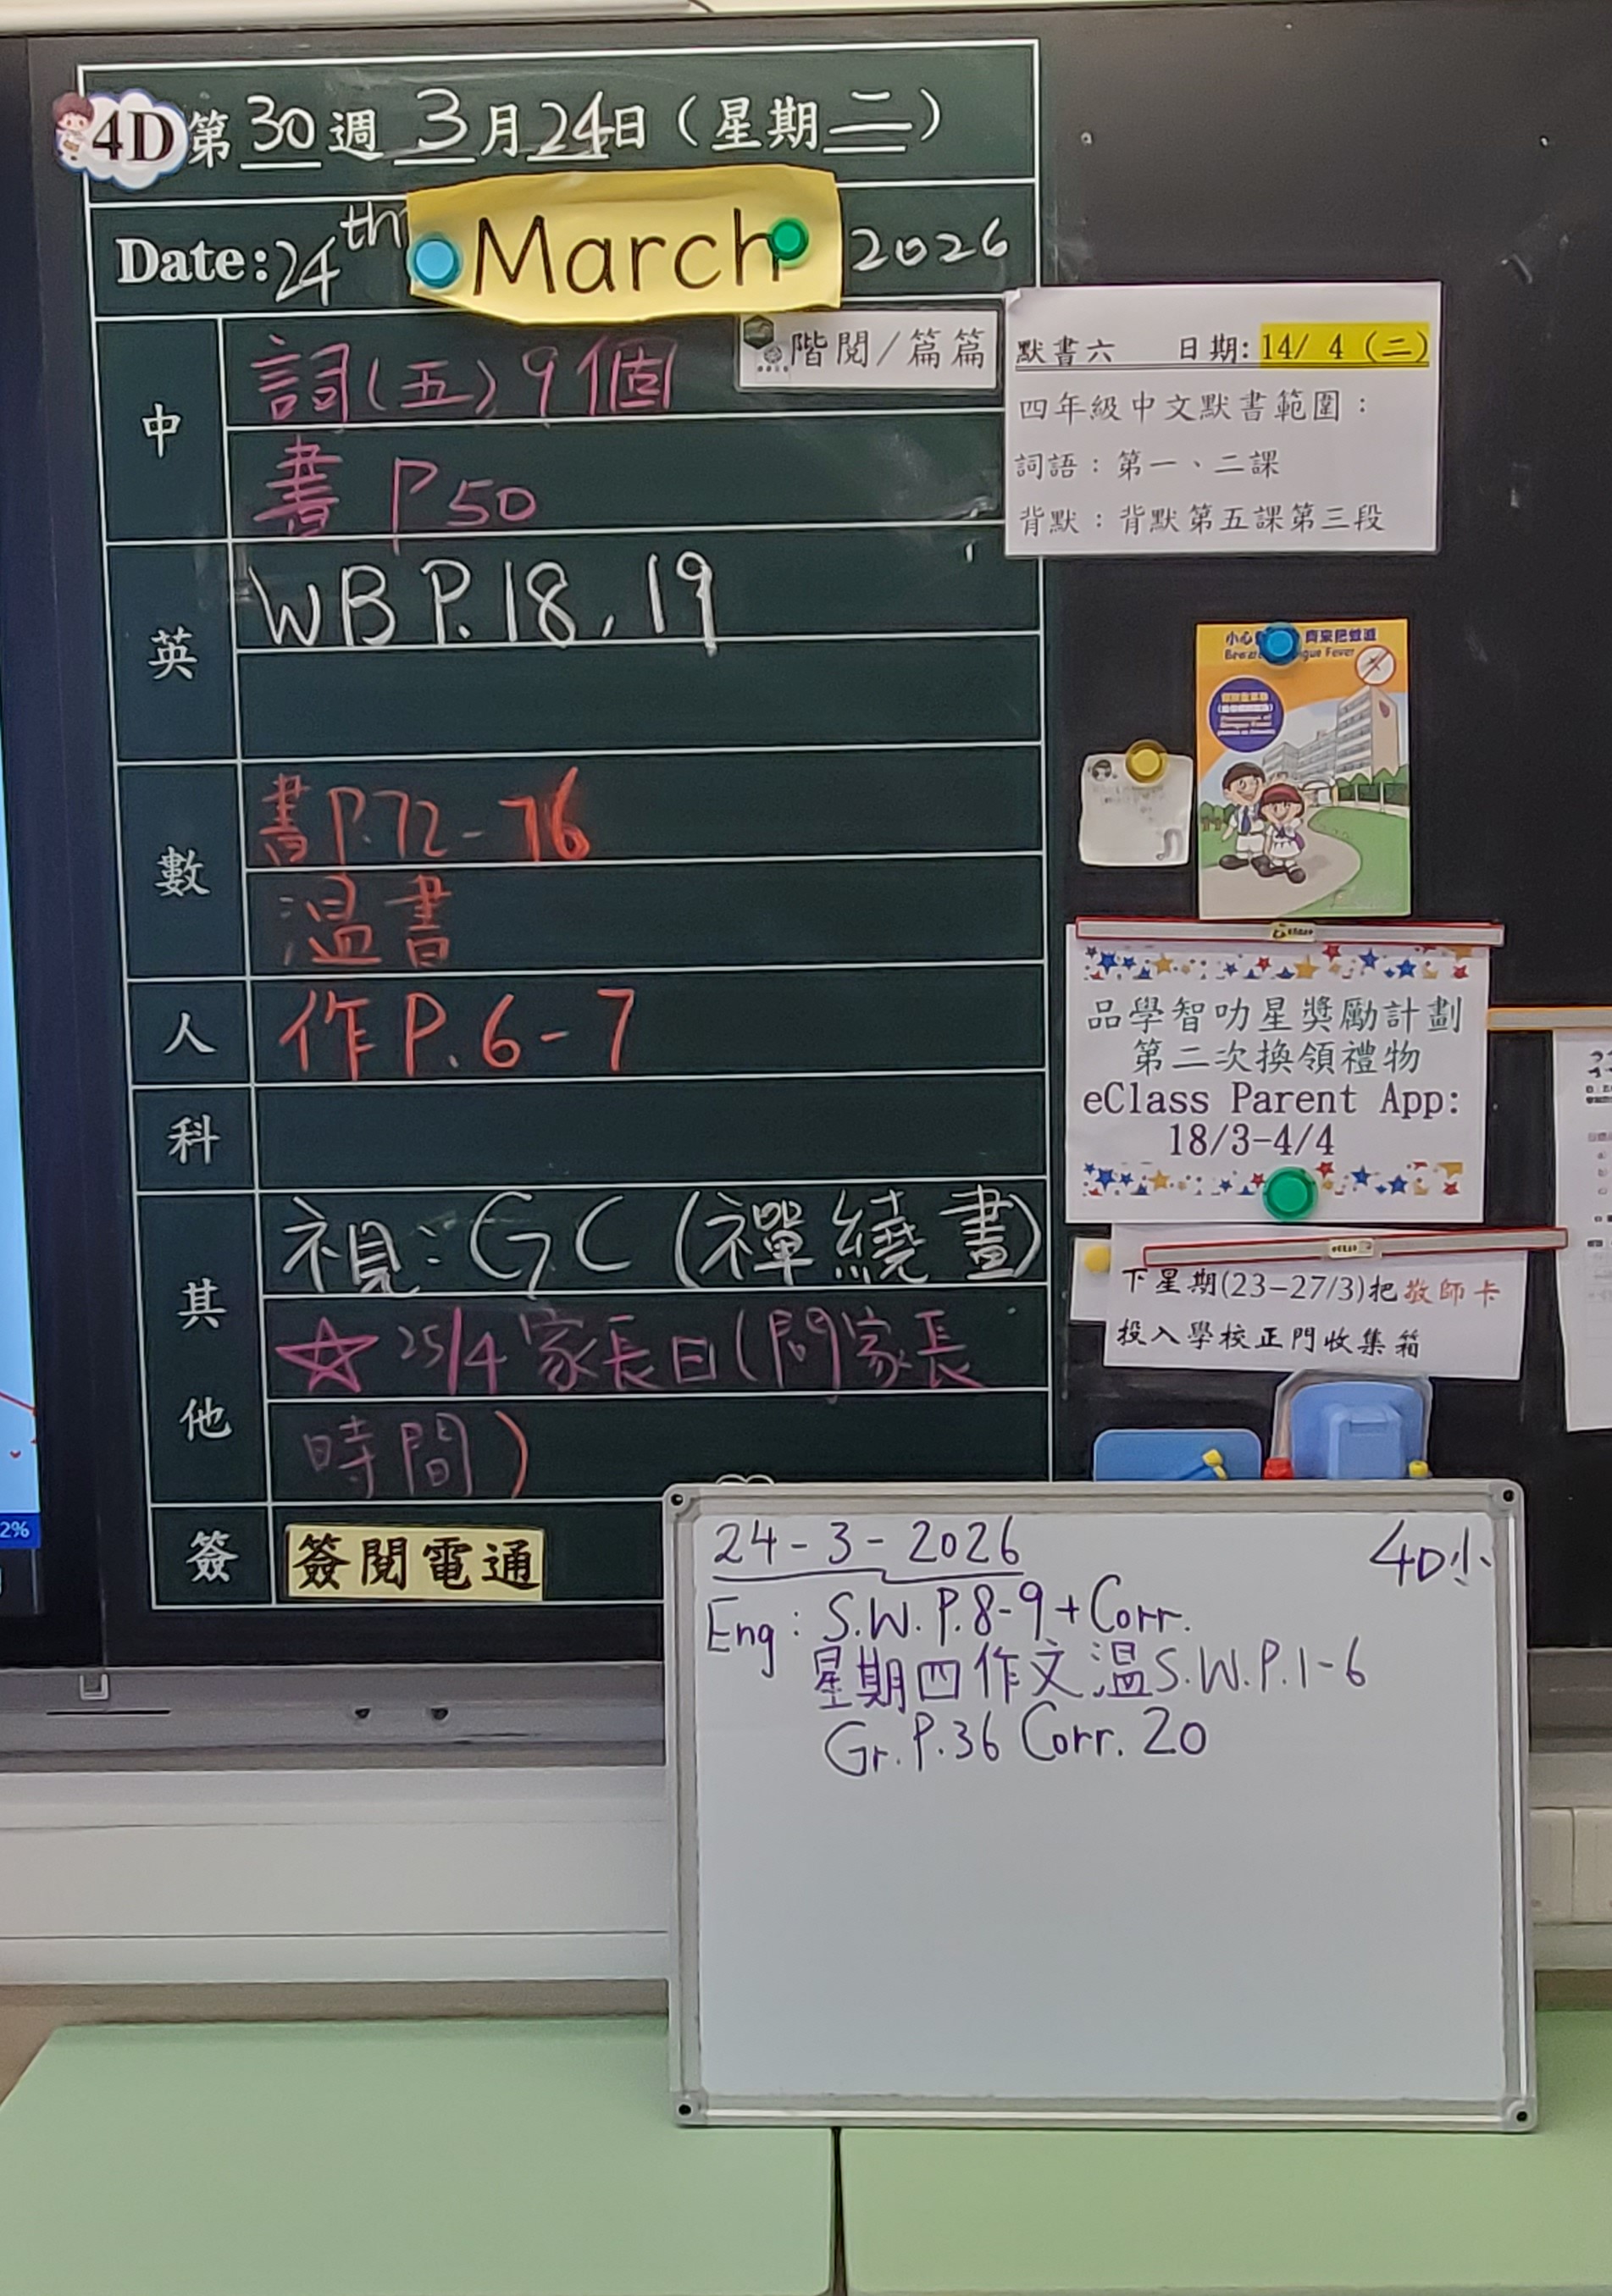 4D 第30週 3月24日(星期二)
Date: 24th March 2026
中
詞(五)9個
階閱/篇篇
書 P50
英
WB P.18, 19
數
書P.72-76
溫書
人
作P.6-7
科
其他
視:GC(禪繞畫)
☆ 25/4 家長日(問家長
時間)
簽
簽閱電通
默書六 日期: 14/ 4 (二)
四年級中文默書範圍:
詞語:第一、二課
背默:背默第五課第三段
品學智叻星獎勵計劃
第二次換領禮物
eClass Parent App:
18/3-4/4
下星期(23-27/3)把敬師卡
投入學校正門收集箱
24-3-2026 4D小
Eng: S.W. P.8-9+Corr.
星期四作文溫S.W.P.1-6
Gr. P.36 Corr. 20
2%